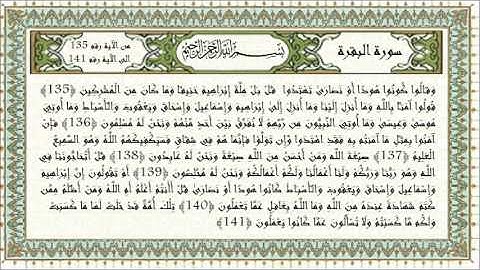 سورة البقرة
بسم الله الرحمن الرحيم
من الآية رقم 135
الى الآية رقم 141
وَقَالُوا كُونُوا هُودًا أَوْ نَصَارَى تَهْتَدُوا قُلْ بَلْ مِلَّةَ إِبْرَاهِيمَ حَنِيفًا وَمَا كَانَ مِنَ الْمُشْرِكِينَ (135)
قُولُوا آمَنَّا بِاللَّهِ وَمَا أُنْزِلَ إِلَيْنَا وَمَا أُنْزِلَ إِلَى إِبْرَاهِيمَ وَإِسْمَاعِيلَ وَإِسْحَاقَ وَيَعْقُوبَ وَالْأَسْبَاطِ وَمَا أُوتِيَ
مُوسَى وَعِيسَى وَمَا أُوتِيَ النَّبِيُّونَ مِنْ رَبِّهِمْ لَا نُفَرِّقُ بَيْنَ أَحَدٍ مِنْهُمْ وَنَحْنُ لَهُ مُسْلِمُونَ (136) فَإِنْ
آمَنُوا بِمِثْلِ مَا آمَنْتُمْ بِهِ فَقَدِ اهْتَدَوْا وَإِنْ تَوَلَّوْا فَإِنَّمَا هُمْ فِي شِقَاقٍ فَسَيَكْفِيكَهُمُ اللَّهُ وَهُوَ السَّمِيعُ
الْعَلِيمُ (137) صِبْغَةَ اللَّهِ وَمَنْ أَحْسَنُ مِنَ اللَّهِ صِبْغَةً وَنَحْنُ لَهُ عَابِدُونَ (138) قُلْ أَتُحَاجُّونَنَا فِي
اللَّهِ وَهُوَ رَبُّنَا وَرَبُّكُمْ وَلَنَا أَعْمَالُنَا وَلَكُمْ أَعْمَالُكُمْ وَنَحْنُ لَهُ مُخْلِصُونَ (139) أَمْ تَقُولُونَ إِنَّ إِبْرَاهِيمَ
وَإِسْمَاعِيلَ وَإِسْحَاقَ وَيَعْقُوبَ وَالْأَسْبَاطَ كَانُوا هُودًا أَوْ نَصَارَى قُلْ أَأَنْتُمْ أَعْلَمُ أَمِ اللَّهُ وَمَنْ أَظْلَمُ مِمَّنْ
كَتَمَ شَهَادَةً عِنْدَهُ مِنَ اللَّهِ وَمَا اللَّهُ بِغَافِلٍ عَمَّا تَعْمَلُونَ (140) تِلْكَ أُمَّةٌ قَدْ خَلَتْ لَهَا مَا كَسَبَتْ
وَلَكُمْ مَا كَسَبْتُمْ وَلَا تُسْأَلُونَ عَمَّا كَانُوا يَعْمَلُونَ (141)